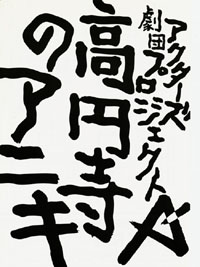 劇団アクターズ
プロジェクトA
高円寺
のアニキ